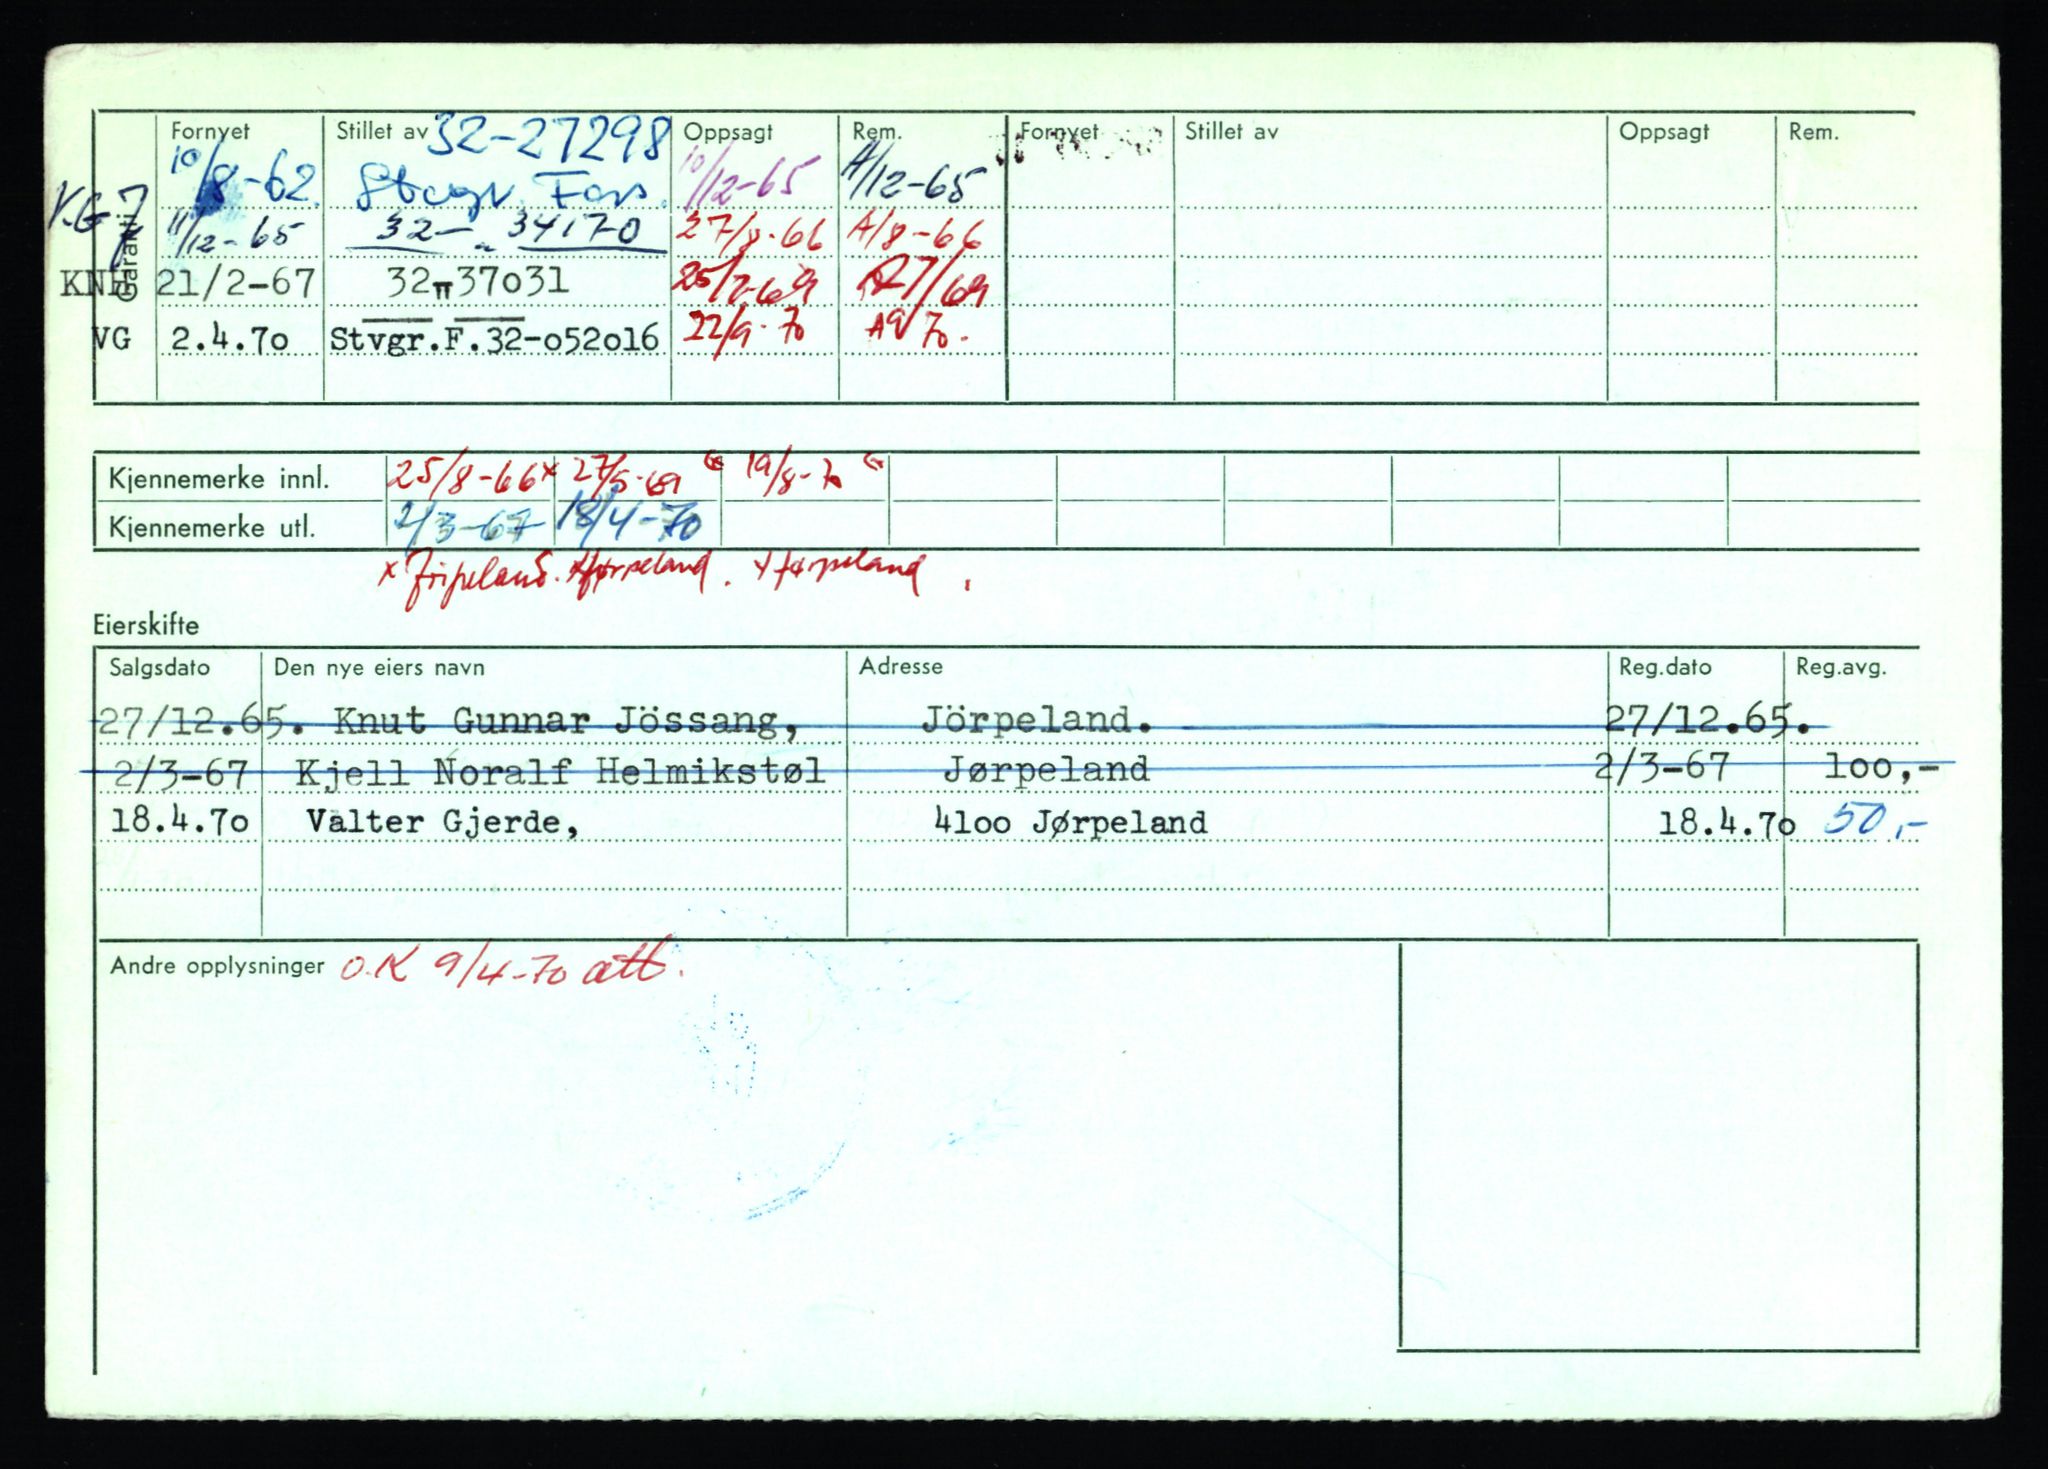 Garanti
Fornyet Stillet av 32-27298 Oppsagt Rem. Fornyet Stillet av Oppsagt Rem.
10/8-62. Stvgr. Fors. 10/12-65 A/12-65
11/12-65 32- 34170 27/8-66 A/8-66
KNH 21/2-67 32 " 37o31 25/7-69 A7/69
VG 2.4.7o Stvgr.F.32-o52o16 22/9-70 A9 70.
Kjennemerke innl. 25/8-66 x 27/5-69 19/8-70
Kjennemerke utl. 2/3-67 18/4-70
x Jørpeland. x Jørpeland. x Jørpeland.
Eierskifte
Salgsdato Den nye eiers navn Adresse Reg.dato Reg.avg.
27/12.65. Knut Gunnar Jössang, Jörpeland. 27/12.65.
2/3-67 Kjell Noralf Helmikstøl Jørpeland 2/3-67 loo,-
18.4.7o Valter Gjerde, 4loo Jørpeland 18.4.7o 50,-
Andre opplysninger O.K 9/4-70 att.